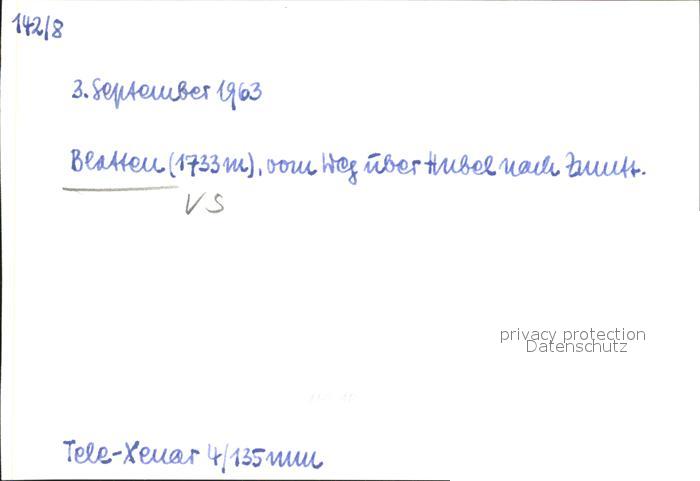 142/8
3. September 1963
Blatten (1733 m), vom Weg über Hubel nach Zmutt.
VS
privacy protection
Datenschutz
Tele-Xenar 4/135 mm